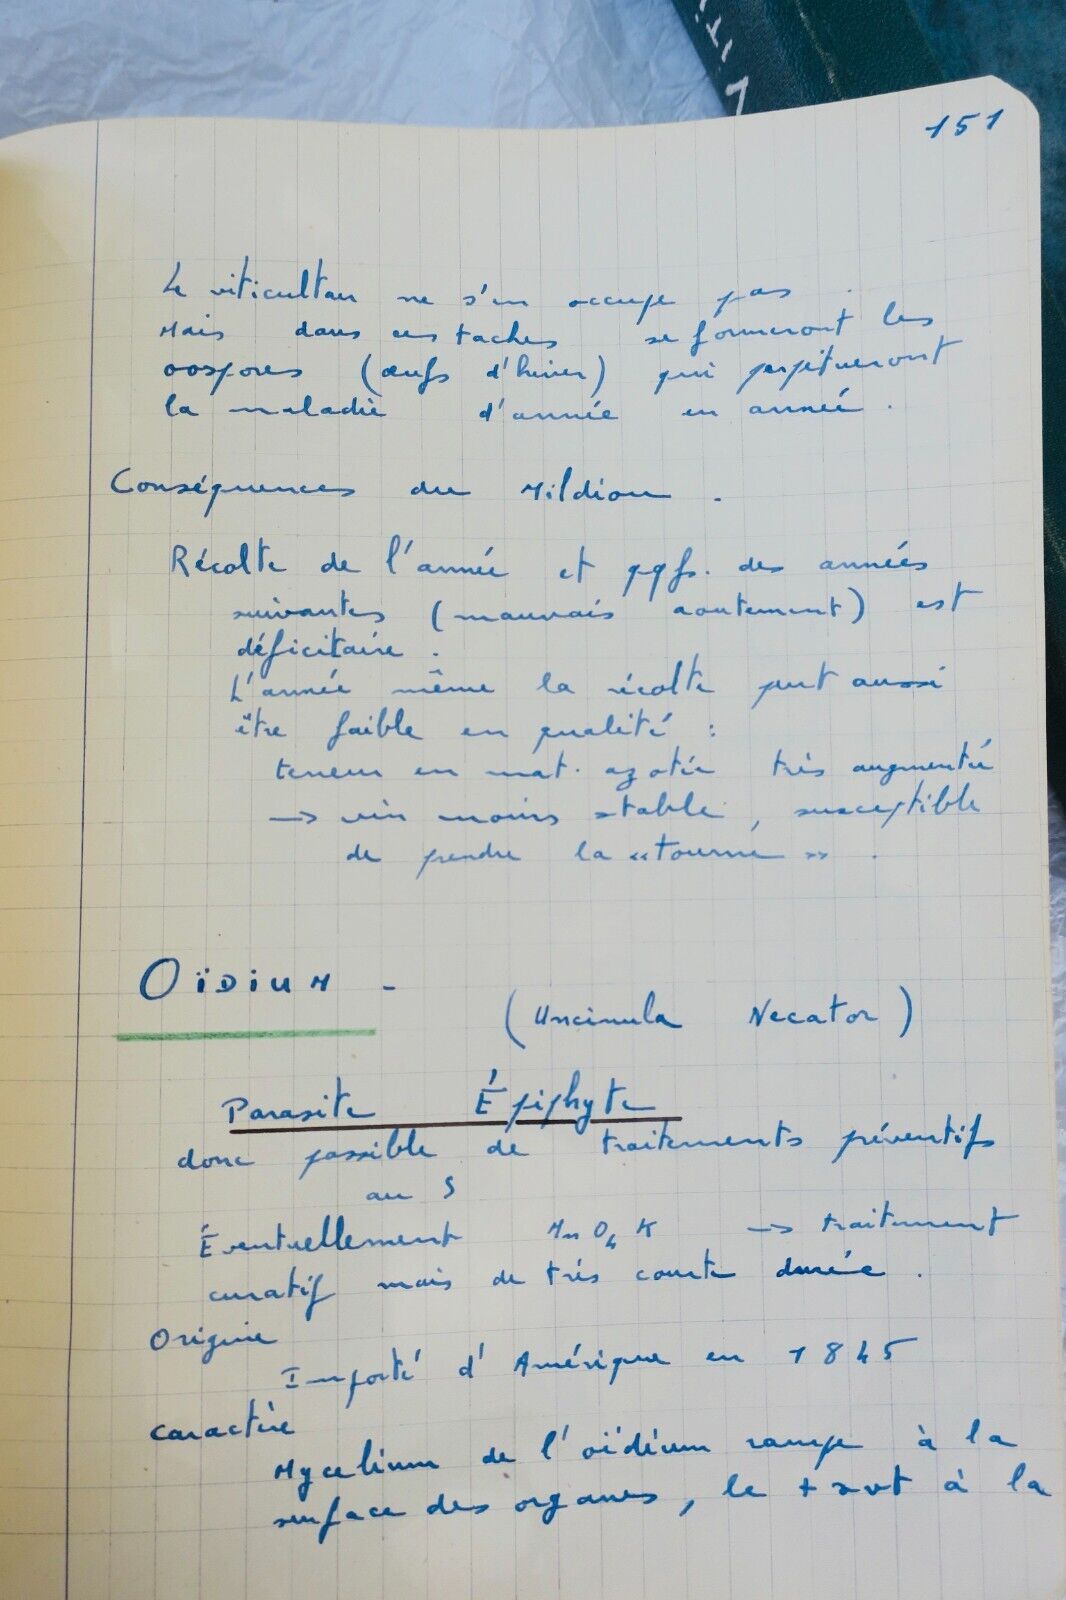 VITI
151
Le viticulteur ne s'en occupe pas.
Mais dans ces taches se formeront les
oospores (œufs d'hiver) qui perpétueront
la maladie d'année en année.
Conséquences du Mildiou.
Récolte de l'année et qqfs. des années
suivantes (mauvais aoutement) est
déficitaire.
L'année même la récolte peut aussi
être faible en qualité :
teneur en mat. azotée très augmentée
→ vin moins stable, susceptible
de prendre la «tourne».
OÏDIUM -
(Uncinula Necator)
Parasite Épiphyte
donc possible de traitements préventifs
au S
Éventuellement MnO4K → traitement
curatif mais de très courte durée.
Origine
Importé d'Amérique en 1845
Caractère
Mycelium de l'oïdium rampe à la
surface des organes, le + svt à la